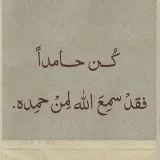 كُـن حـامـداً
فقدْ سمِعَ الله لِمنْ حمِده.